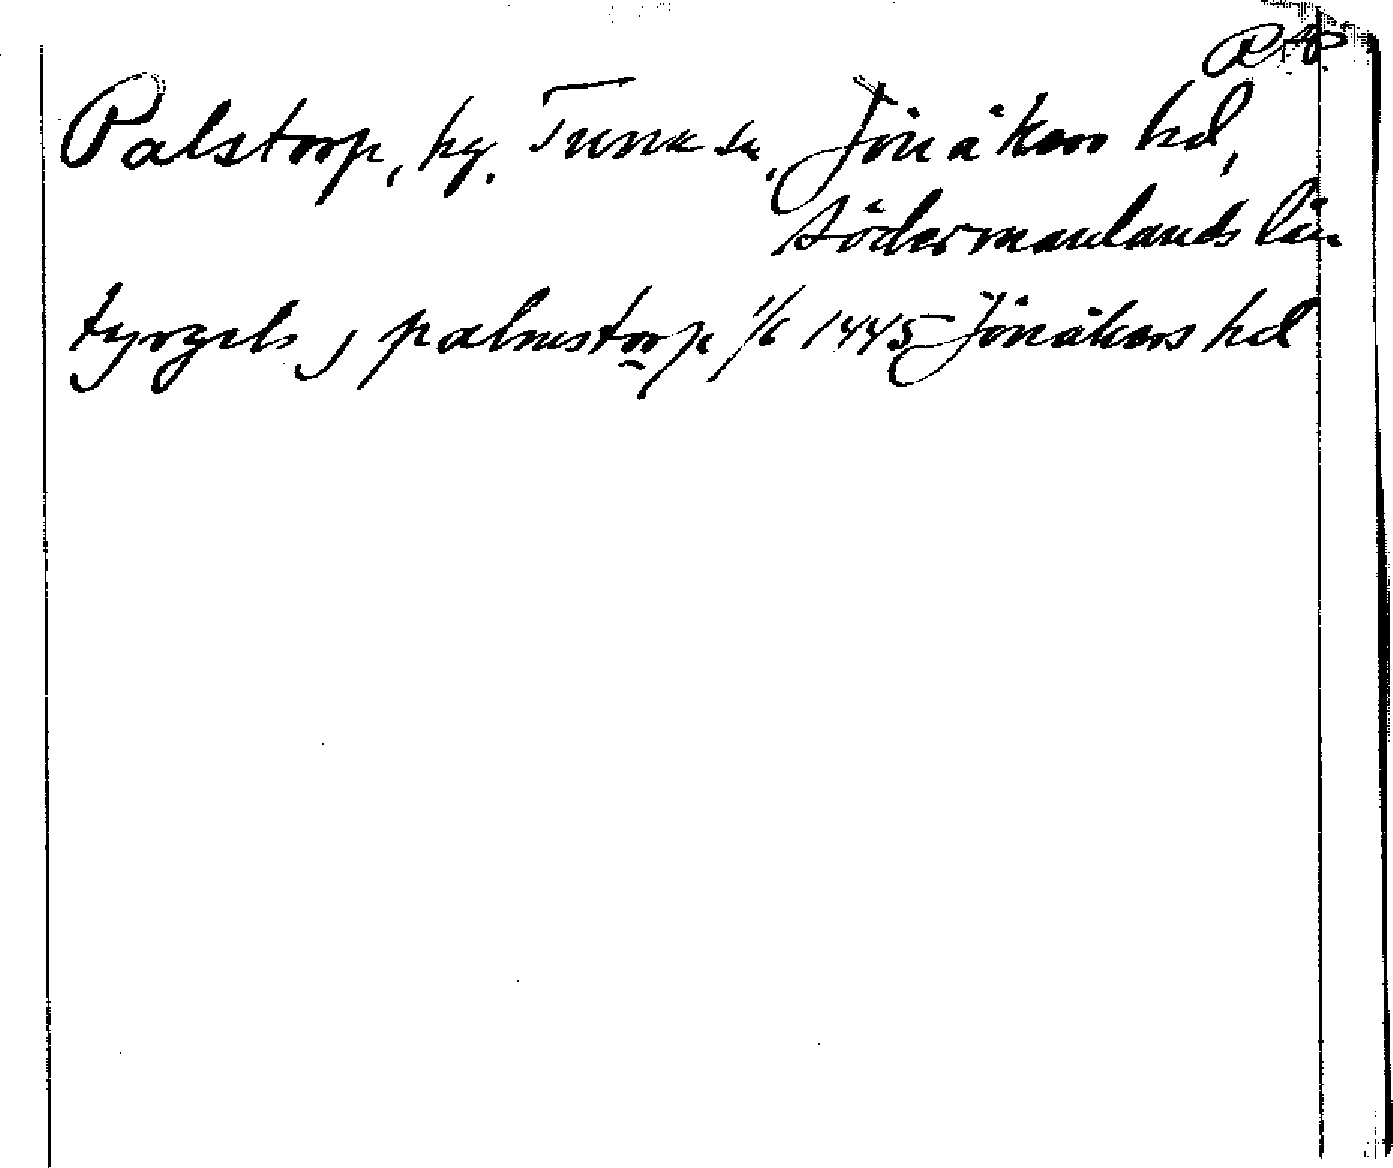 RAp
Palstorp, hg. Tuna sn, Jönåkers hd,
Södermanlands län
tyrgels j palmstorp 1/6 1445 Jönåkers hd